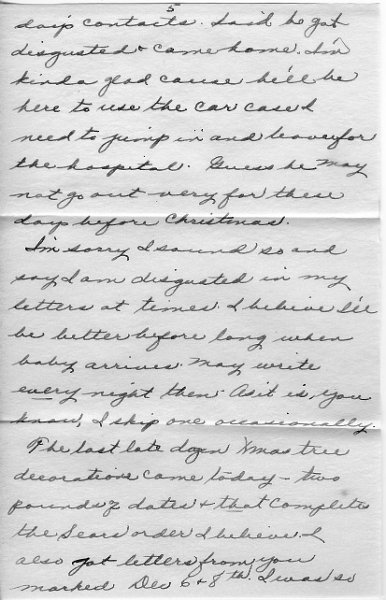 5
days contacts. Said he got
disgusted & came home. I'm
kinda glad cause he'll be
here to use the car case I
need to jump in and leave for
the hospital. Guess he may
not go out very far these
days before Christmas.
I'm sorry I sound so and
say I am disgusted in my
letters at times. I believe I'll
be better before long when
baby arrives. May write
every night then. As it is, you
know, I skip one occasionally.
The last late dozen Xmas tree
decorations came today - two
pounds dates & that completes
the Sears order I believe. I
also got letters from you
marked Dec 6 & 8th. I was so